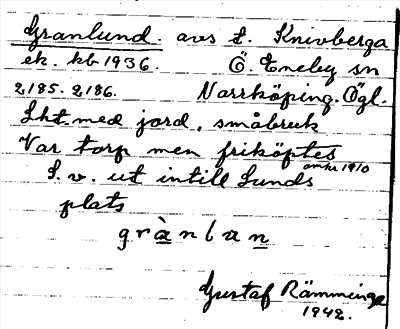 Granlund. avs f. Knivberga
ek. kb 1936. Ö. Eneby sn
2185. 2186. Norrköping. Ögl.
Lht med jord, småbruk
Var torp men friköptes
omkr 1910
S. v. ut intill Lunds
plats
grànlan
Gustaf Rämminge
1942.